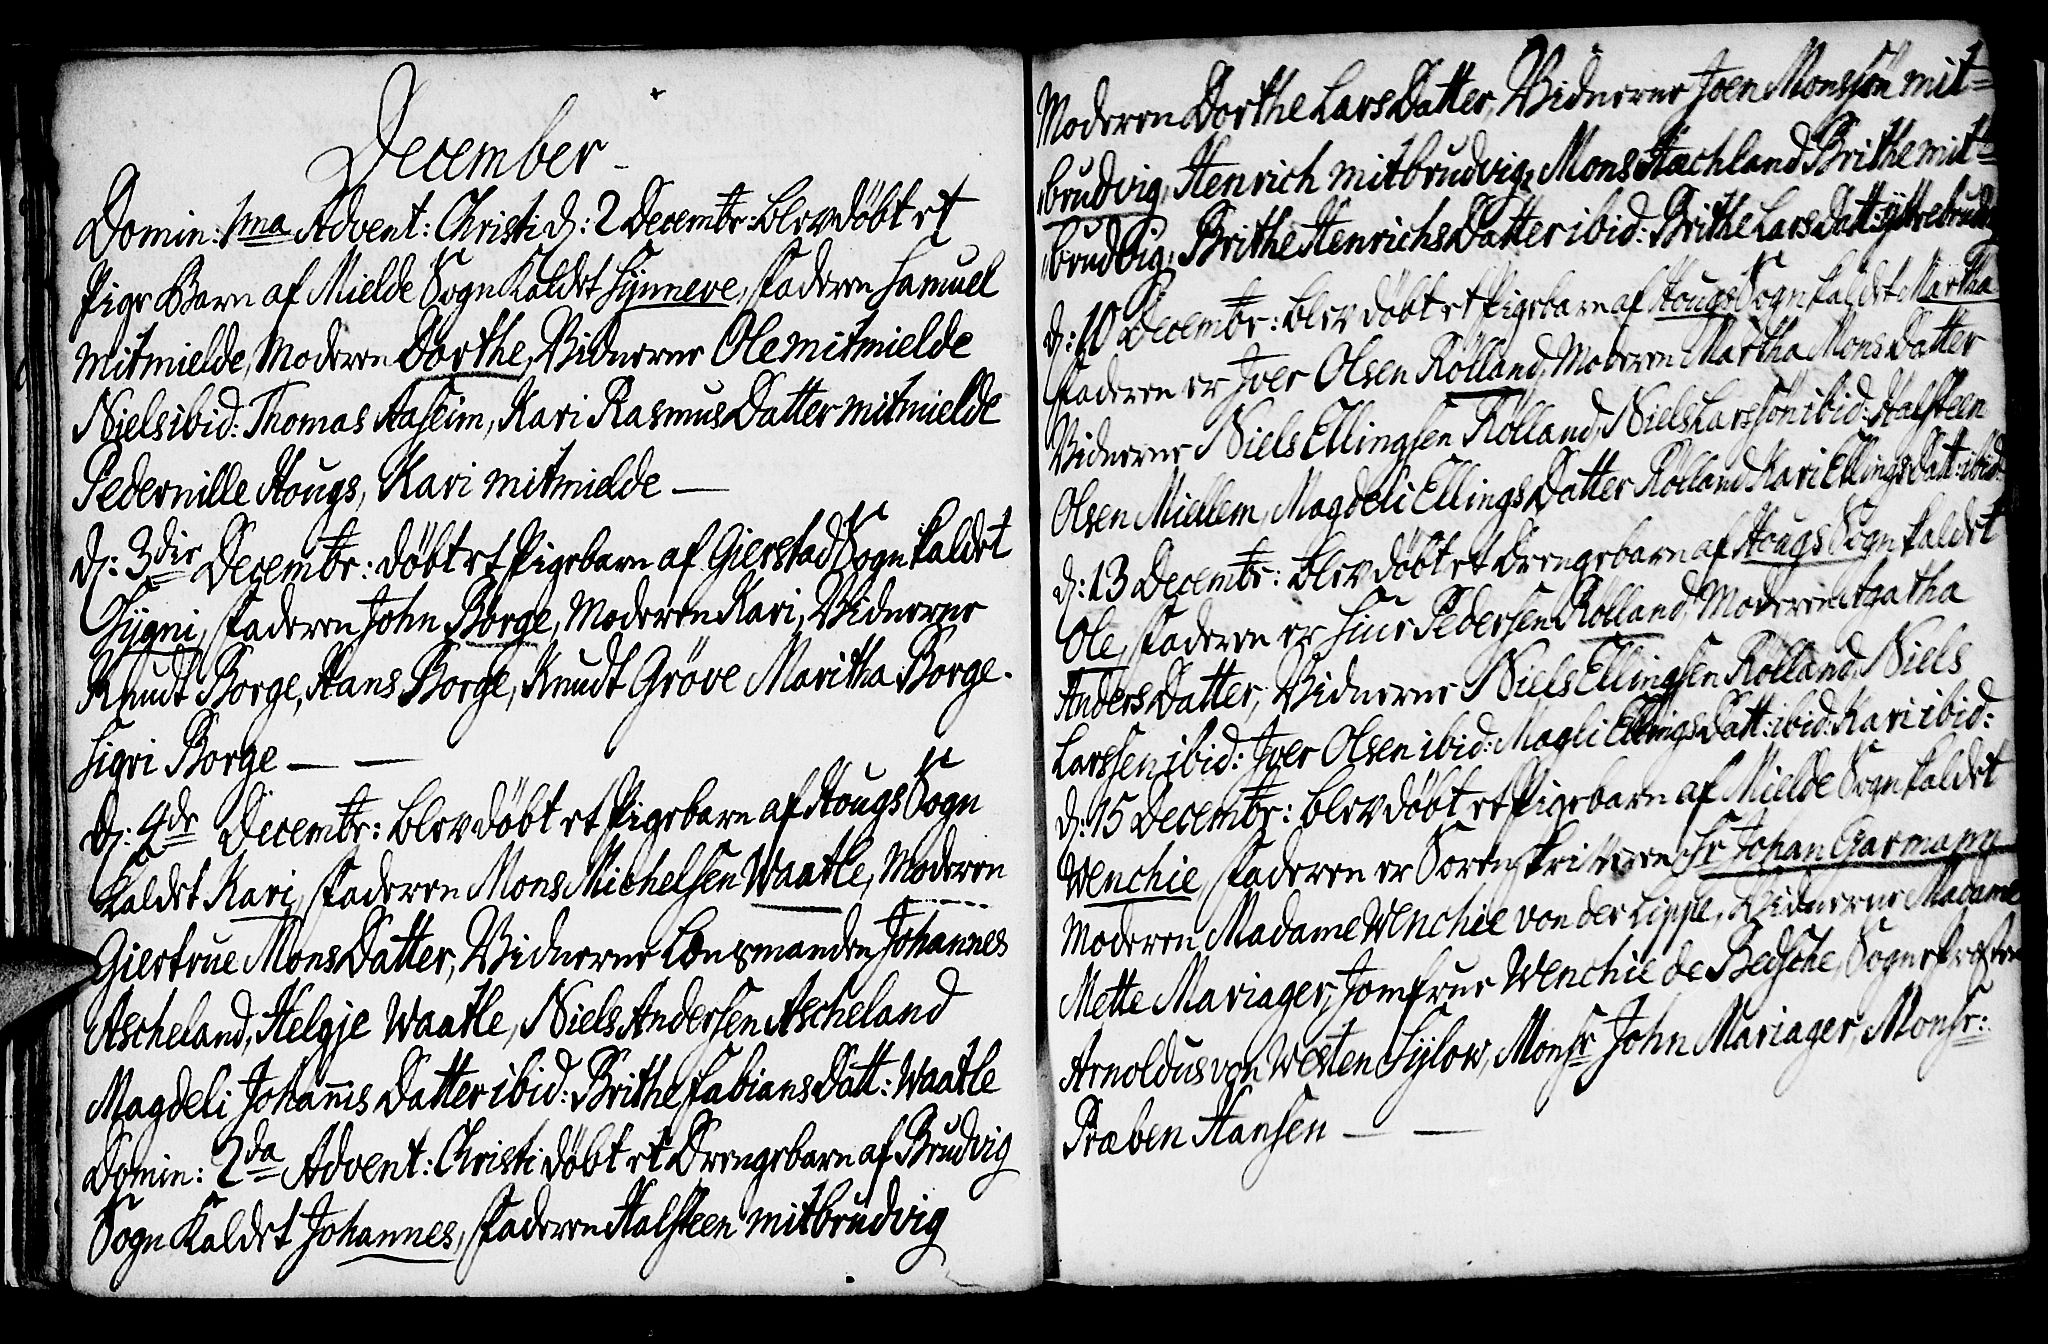 December
Domin: 1ma Advent: Christi d: 2 Decembr: blev döbt et
Pige Barn af Mielde Sogn Kaldet Synneve, Faderen Samuel
Mitmielde, Moderen Dorthe, Vidnerne Ole mitmielde
Niels ibid: Thomas Aaseim, Kari Rasmus Datter mitmielde
Pedernille Hougs, Kari mitmielde —
d: 3die Decembr: döbt et Pigebarn af Gierstad Sogn kaldet
Sygni, Faderen John Borge, Moderen Kari, Vidnerne
Knudt Borge, Hans Borge, Knudt Gröve Maritha Borge.
Sigri Borge — —
d: 4de Decembr: blev döbt et Pigebarn af Hougs Sogn
Kaldet Kari, Faderen Mons Michelsen Waatle, Moderen
Giertrue Mons Datter, Vidnerne Lensmanden Johannes
Ascheland, Helgje Waatle, Niels Andersen Ascheland
Magdeli Johannis Datter ibid: Brithe Fabians Datt: Waatle
Domin: 2da Advent: Christi döbt et Drengebarn af Brudvig
Sogn Kaldet Johannes, Faderen Halsteen mitbrudvig
Moderen Dorthe Lars Datter, Vidnerne Joen Monssön mit=
brudvig, Henrich mitbrudvig, Mons Hachland Brithe mit=
brudvig, Brithe Henrichs Datter ibid: Brithe Lars Datt: yttrebrudv
d: 10 Decembr: blev döbt et Pigebarn af Hougs Sogn kaldet Martha
Faderen er Iver Olsen Rölland, Moderen Martha Mons Datter
Vidnerne Niels Ellingsen Rölland, Niels Larssön ibid: Halsteen
Olsen Miellem, Magdeli Ellings Datter Rölland Kari Ellings Datt: ibid:
d: 13 Decembr: blev döbt et Drengebarn af Hougs Sogn kaldet
Ole, Faderen er Siur Pedersen Rölland, Moderen Agatha
Anders Datter, Vidnerne Niels Ellingsen Rölland, Niels
Larssen ibid: Iver Olsen ibid: Magli Ellings Datt: ibid: Kari ibid:
d: 15 Decembr: blev döbt et Pigebarn af Mielde Sogn kaldet
Wenchie, Faderen er Sorenskriveren Sr Johan Garmann
Moderen Madame Wenchie von der Lippe, Vidnerne Madame
Mette Mariager, Jomfrue Wenchie de Besche, Sognepræsten
Arnoldus von Westen Sylow, Monsr John Mariager, Monsr:
Præben Hansen — —